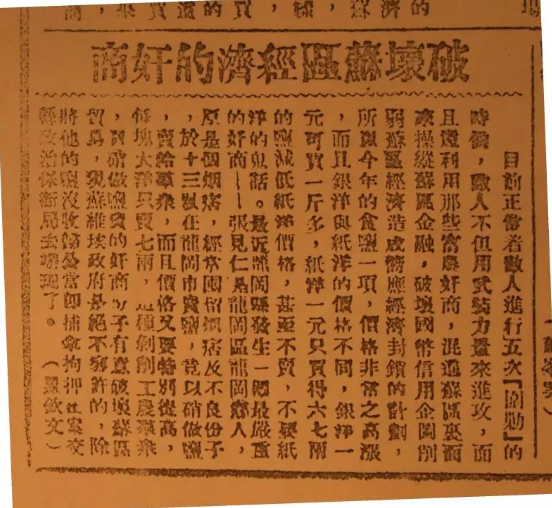 破壞蘇區經濟的奸商
目前正當着敵人進行五次『圍勦』的
時候，敵人不但用武裝力量來進攻，而
且還利用那些富農奸商，混進蘇區裏面
來操縱蘇區金融，破壞國幣信用企圖削
弱蘇區經濟造成響應經濟封鎖的計劃，
所以今年的食鹽一項，價格非常之高漲
，而且銀洋與紙洋的價格不同，銀洋一
元可買一斤多，紙洋一元只買得六七兩
的鹽減低紙洋價格，甚至不賣，不要紙
洋的鬼話。最近龍岡縣發生一個最嚴重
的奸商——張見仁是龍岡區龍岡鄉人，
原是個烟痞，經常團留烟痞及不良份子
，於十三日在龍岡市賣鹽，竟以硝做鹽
，賣給羣衆，而且價格又要特別從高，
每塊大洋只賣七兩，這種剝削工農羣衆
，以硝做鹽賣的奸商分子有意破壞蘇區
貿易，我蘇維埃政府是絕不寬許的，除
將他的鹽沒收歸公當即捕拿拘押在案交
縣政治保衛局去辦理了。（欽文）